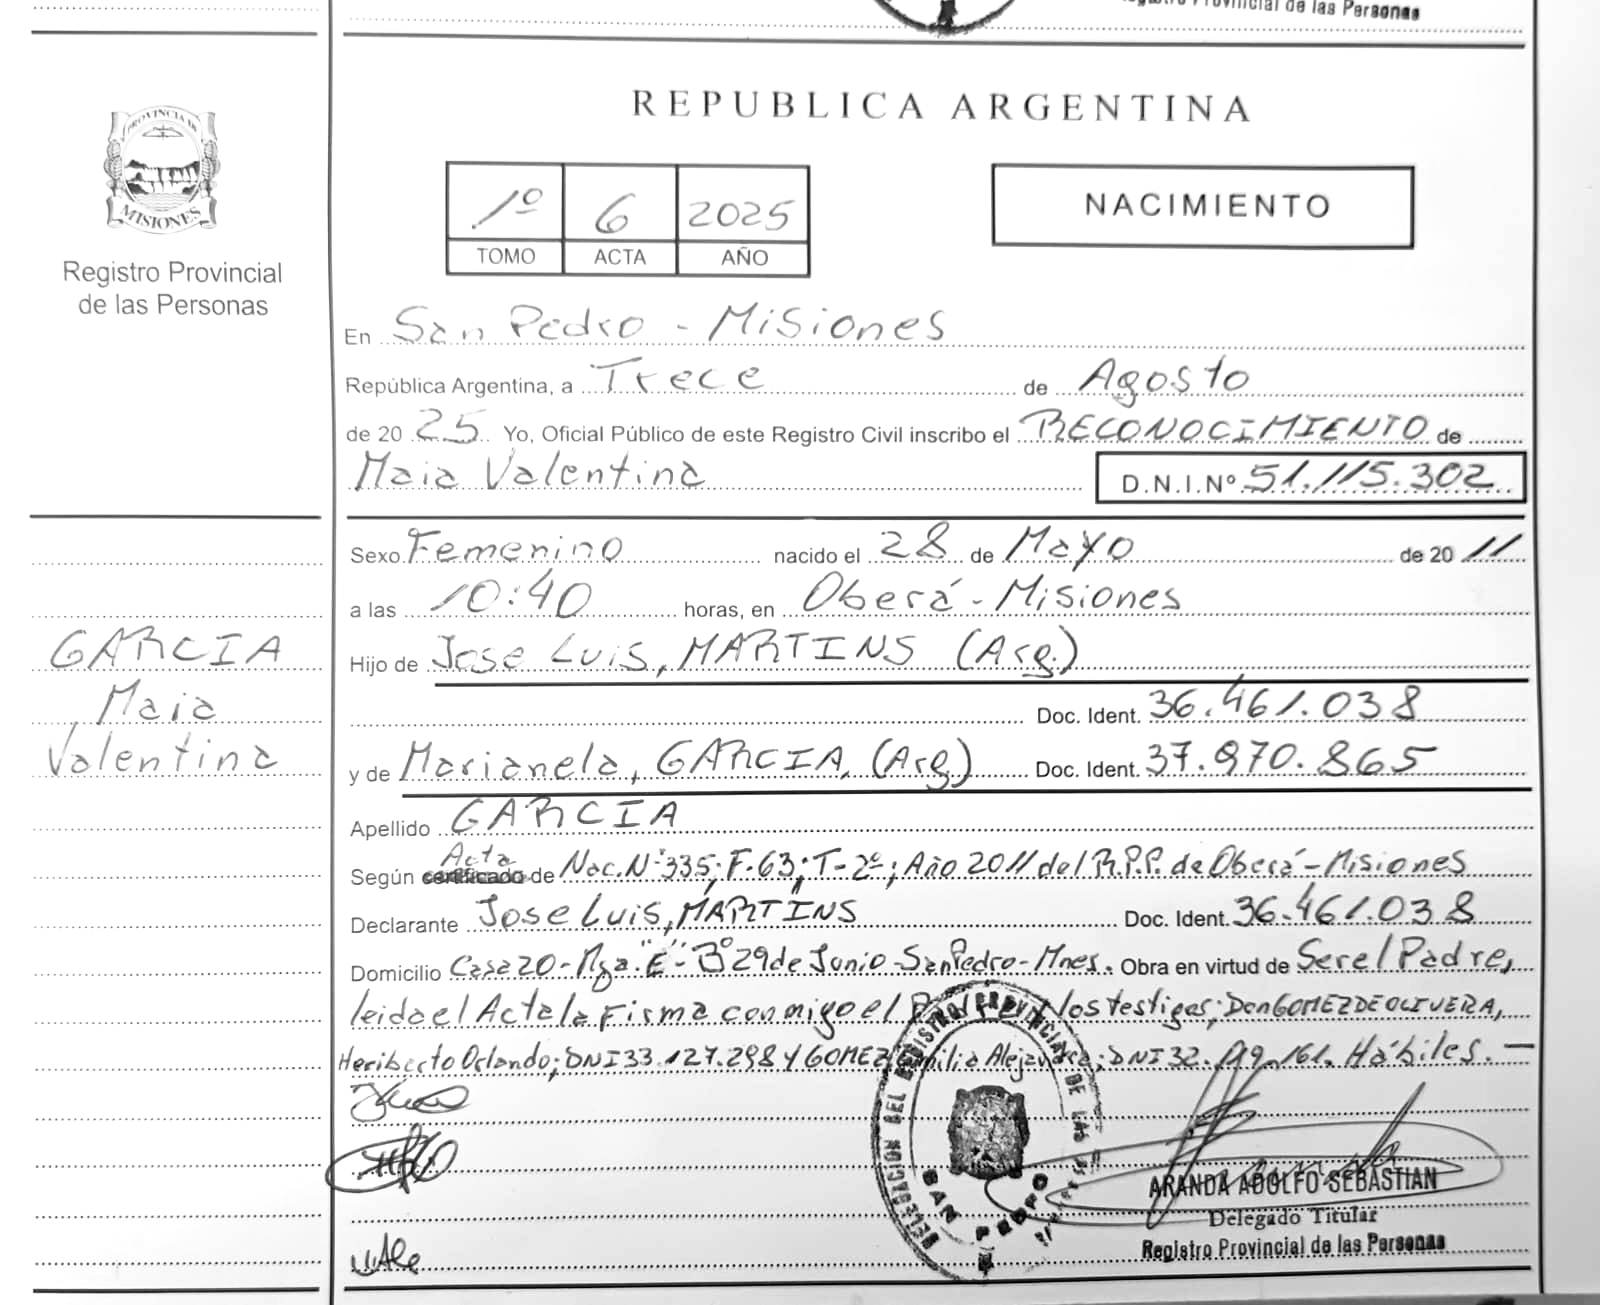 Registro Provincial de las Personas
REPUBLICA ARGENTINA
PROVINCIA DE
MISIONES
Registro Provincial
de las Personas
1º 6 2025
TOMO ACTA AÑO
NACIMIENTO
En San Pedro - Misiones
República Argentina, a Trece de Agosto
de 20 25 Yo, Oficial Público de este Registro Civil inscribo el RECONOCIMIENTO de
Maia Valentina D.N.I.Nº 51.115.302
Sexo Femenino nacido el 28 de Mayo de 20 11
a las 10:40 horas, en Oberá - Misiones
GARCIA
Maia
Valentina
Hijo de Jose Luis, MARTINS (Arg.)
Doc. Ident. 36.461.038
y de Marianela, GARCIA, (Arg.) Doc. Ident. 37.970.865
Apellido GARCIA
Acta
Según certificado de Nac. Nº 335; F-63; T-2º; Año 2011 del R.P.P. de Oberá - Misiones
Declarante Jose Luis, MARTINS Doc. Ident. 36.461.038
Domicilio Casa 20 - Mza. "E" - Bº 29 de Junio - San Pedro - Mnes. Obra en virtud de Ser el Padre,
leida el Acta la Firma conmigo el los testigos; Don GOMEZ DE OLIVERA,
Heriberto Orlando; DNI 33.127.298 y GOMEZ Emilia Alejandra; DNI 32. .161. Hábiles. —
DELEGACION DEL REGISTRO PROVINCIAL DE LAS
SAN PEDRO
ARANDA ADOLFO SEBASTIAN
Delegado Titular
Registro Provincial de las Personas